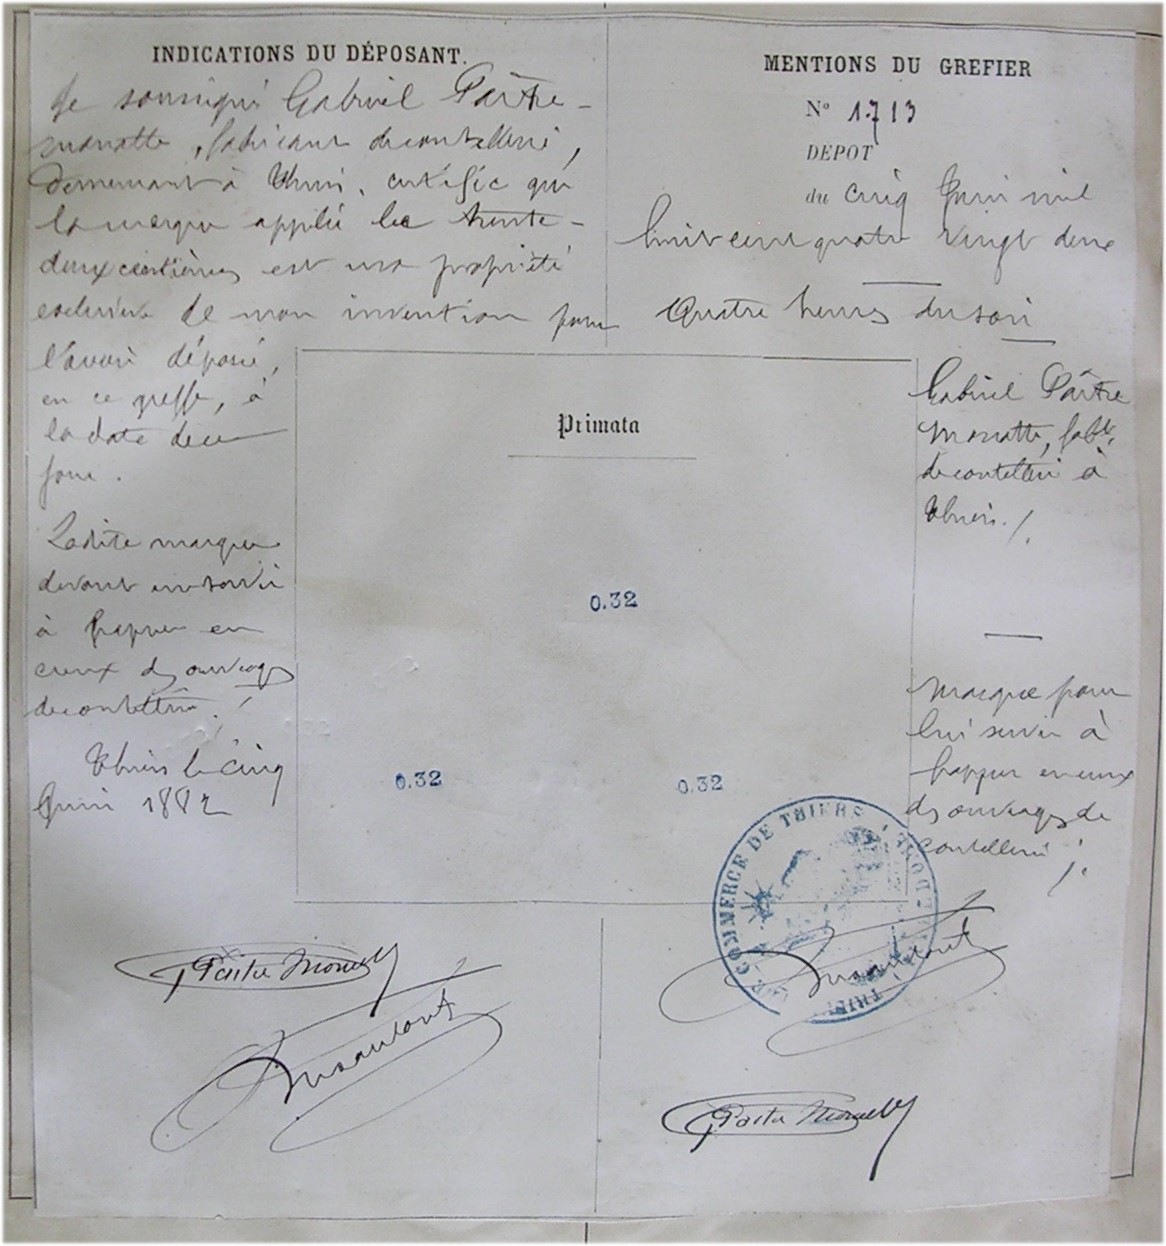 INDICATIONS DU DÉPOSANT.
Je soussigné Gabriel Pâtre-
manotte, fabricant de coutellerie,
Demeurant à Thiers, certifie que
la marque appelée les trente-
deux centièmes est une propriété
exclusive de mon invention pour
l'avoir déposée,
en ce greffe, à
la date de ce
jour.
Ladite marque
devant me servir
à frapper en
creux des ouvrages
de coutellerie ./.
Thiers le cinq
Juin 1882
MENTIONS DU GREFIER
N° 1713
DÉPOT
du cinq Juin mil
huit cent quatre vingt deux
quatre heures du soir
Gabriel Pâtre
Manotte, fabt.
de coutellerie à
Thiers ./.
Marque pour
lui servir à
frapper en creux
des ouvrages de
coutellerie ./.
Primata
0.32
0.32
0.32
COMMERCE DE THIERS